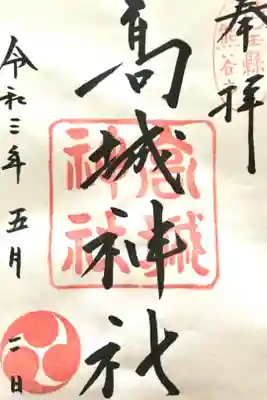 奉拝
埼玉縣
熊谷市
髙城神社
高城
神社
令和三年 五月 二日